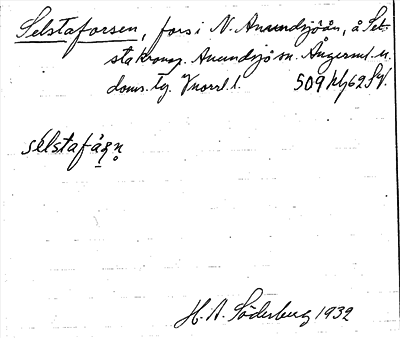 Selstaforsen, fors i N. Anundsjöån, å Sel-
sta kronop. Anundsjö sn. Ångerml. n.
doms. tg. Vnorrl. l. 509 Hh 62 Syl.
selstafåṣṇ
H. A. Söderberg 1932